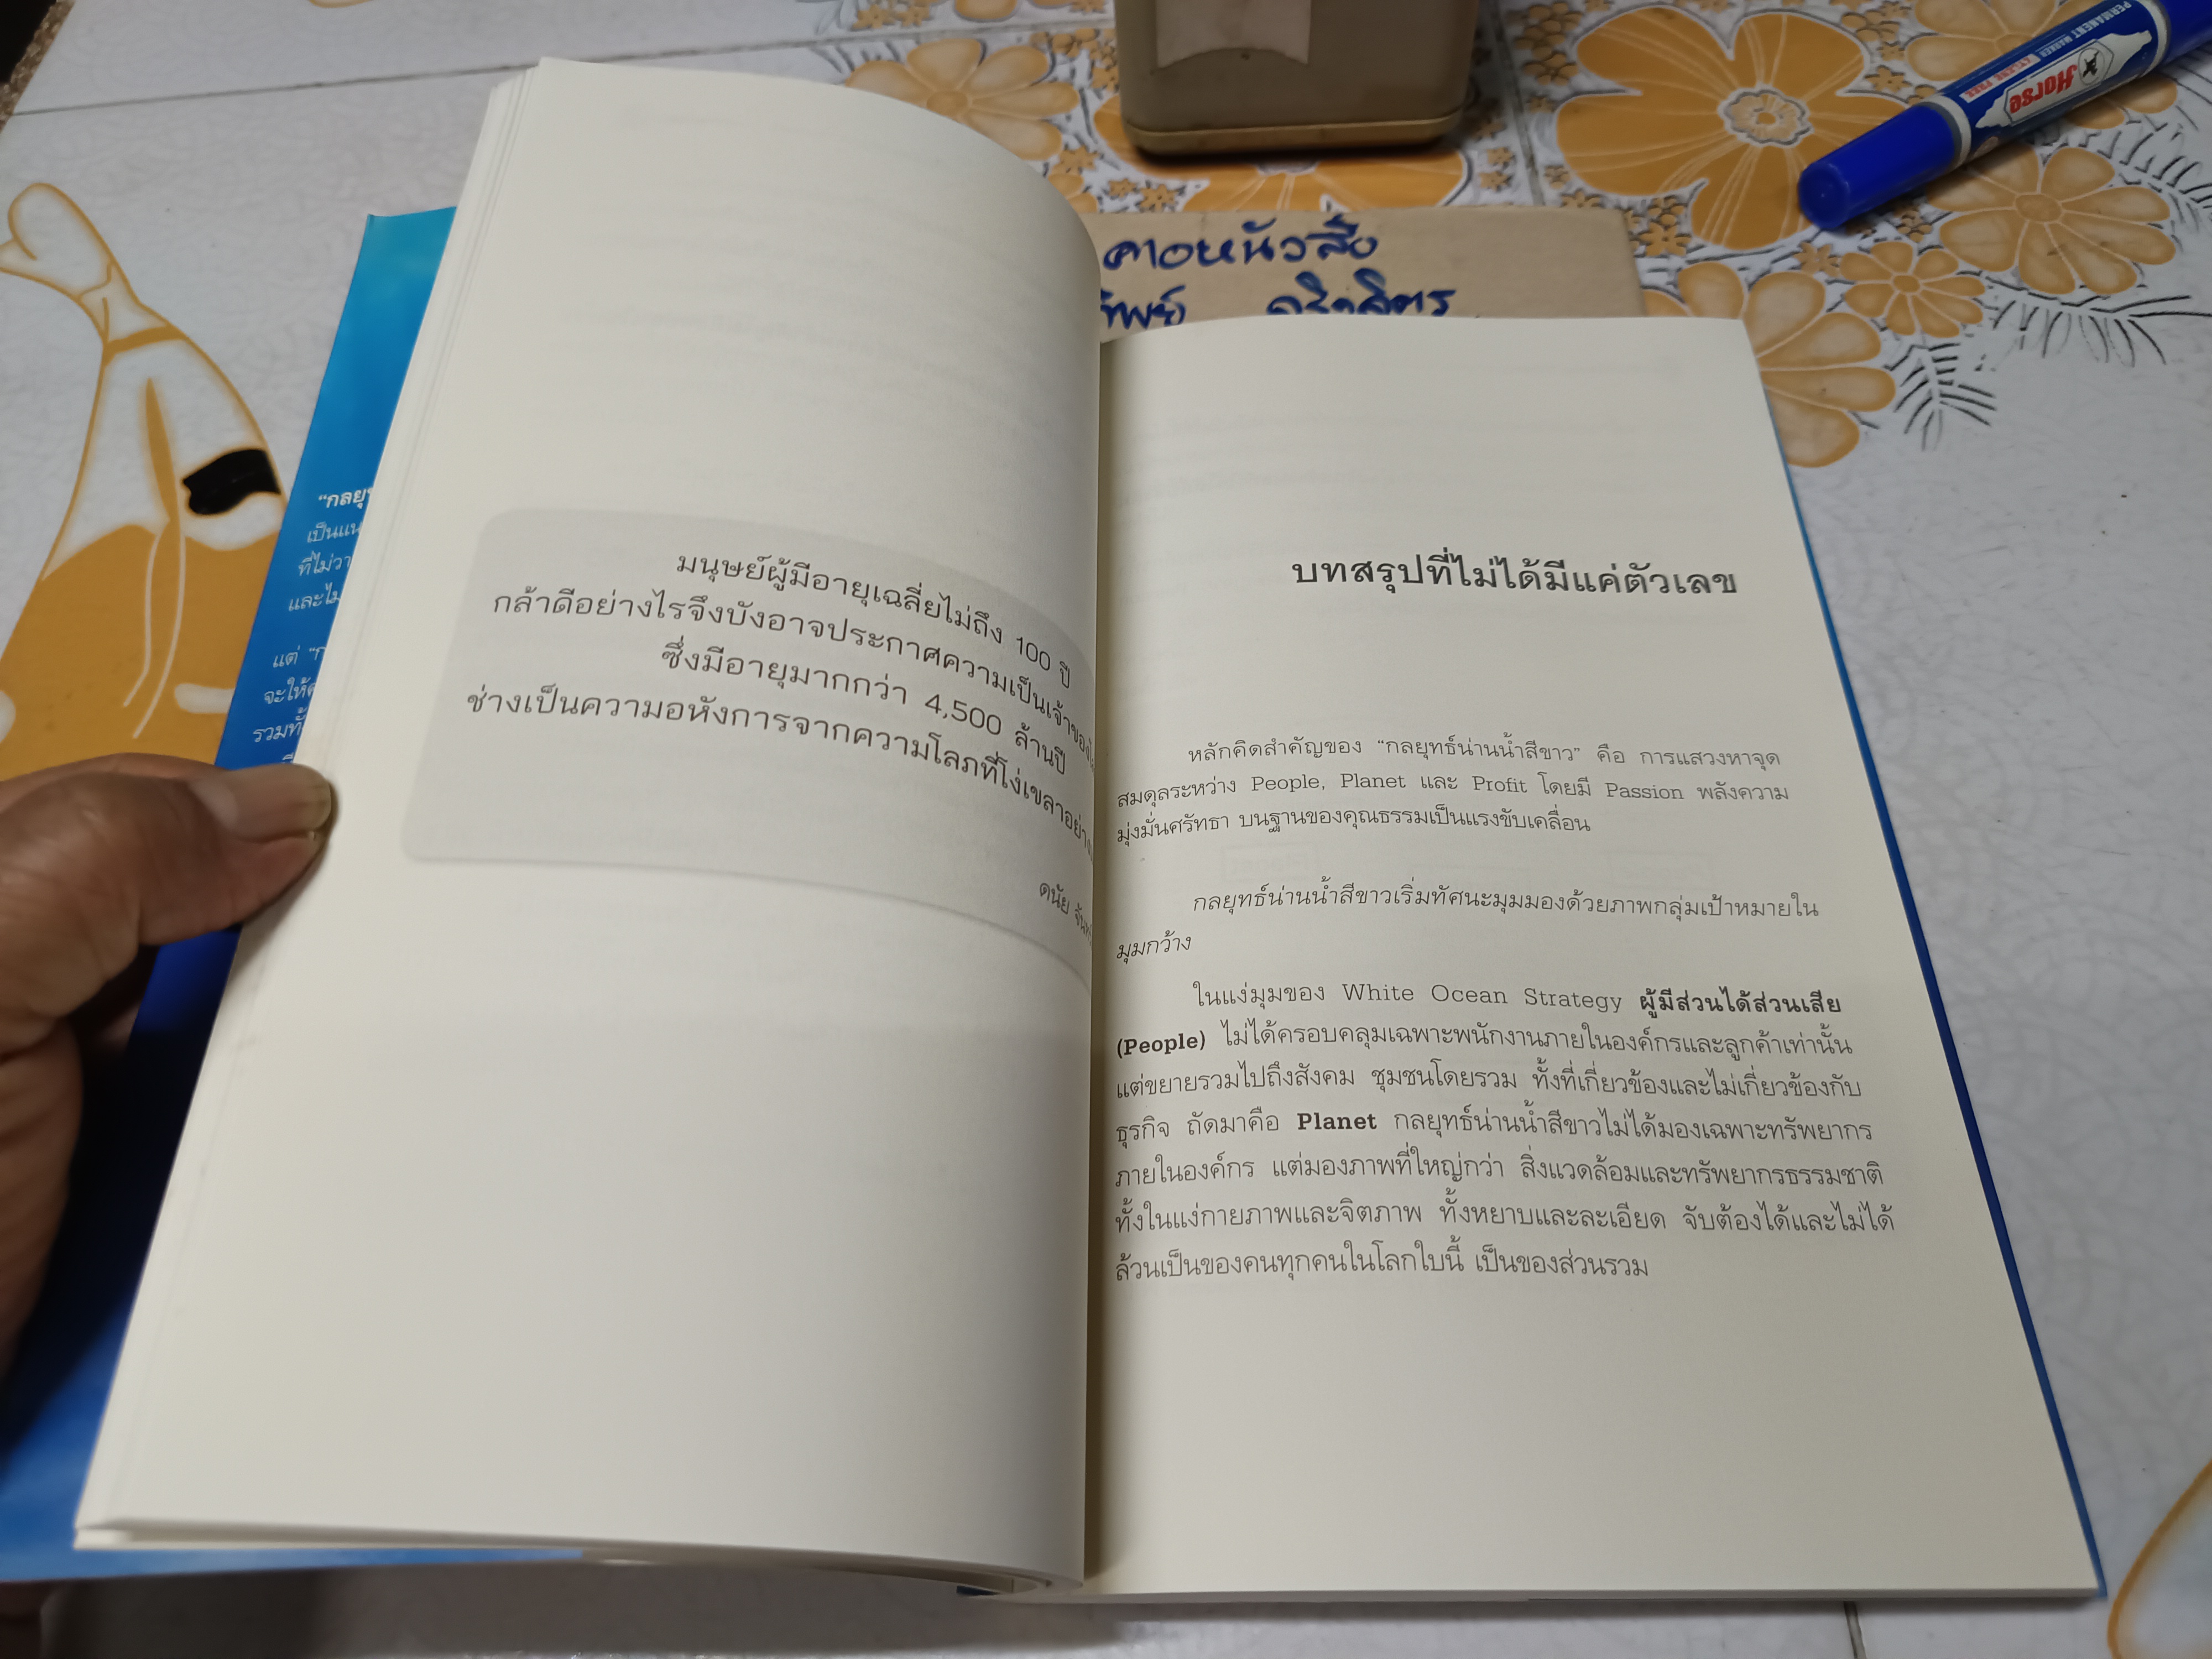 คาอหนัวสือ
ทิพย์
PERMANENT MARKER
XYLENE FREE
Horse
"กลยุ
เป็นแน
ที่ไม่วา
และไม่
แต่ "ก
จะให้
รวมทั้
มนุษย์ผู้มีอายุเฉลี่ยไม่ถึง 100 ปี
กล้าดีอย่างไรจึงบังอาจประกาศความเป็นเจ้าของ
ซึ่งมีอายุมากกว่า 4,500 ล้านปี
ช่างเป็นความอหังการจากความโลภที่โง่เขลาอย่า
ดนัย จันท
บทสรุปที่ไม่ได้มีแค่ตัวเลข
หลักคิดสำคัญของ "กลยุทธ์น่านน้ำสีขาว" คือ การแสวงหาจุด
สมดุลระหว่าง People, Planet และ Profit โดยมี Passion พลังความ
มุ่งมั่นศรัทธา บนฐานของคุณธรรมเป็นแรงขับเคลื่อน
กลยุทธ์น่านน้ำสีขาวเริ่มทัศนะมุมมองด้วยภาพกลุ่มเป้าหมายใน
มุมกว้าง
ในแง่มุมของ White Ocean Strategy ผู้มีส่วนได้ส่วนเสีย
(People) ไม่ได้ครอบคลุมเฉพาะพนักงานภายในองค์กรและลูกค้าเท่านั้น
แต่ขยายรวมไปถึงสังคม ชุมชนโดยรวม ทั้งที่เกี่ยวข้องและไม่เกี่ยวข้องกับ
ธุรกิจ ถัดมาคือ Planet กลยุทธ์น่านน้ำสีขาวไม่ได้มองเฉพาะทรัพยากร
ภายในองค์กร แต่มองภาพที่ใหญ่กว่า สิ่งแวดล้อมและทรัพยากรธรรมชาติ
ทั้งในแง่กายภาพและจิตภาพ ทั้งหยาบและละเอียด จับต้องได้และไม่ได้
ล้วนเป็นของคนทุกคนในโลกใบนี้ เป็นของส่วนรวม